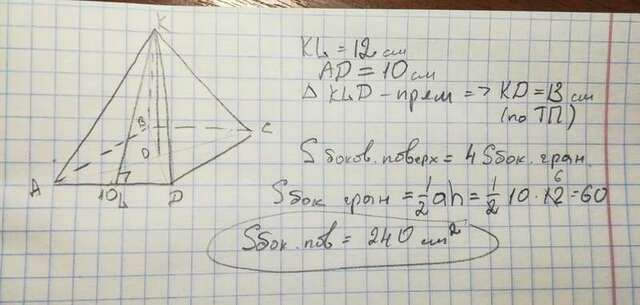 K
KL = 12 см
AD = 10 см
Δ KLD - прям => KD = 13 см
(по ТП)
B
C
O
A
10
L
D
S боков. поверх = 4 S бок. гран.
S бок гран = 1/2 ah = 1/2 10 · 12 = 60
6
S бок. пов = 240 см²